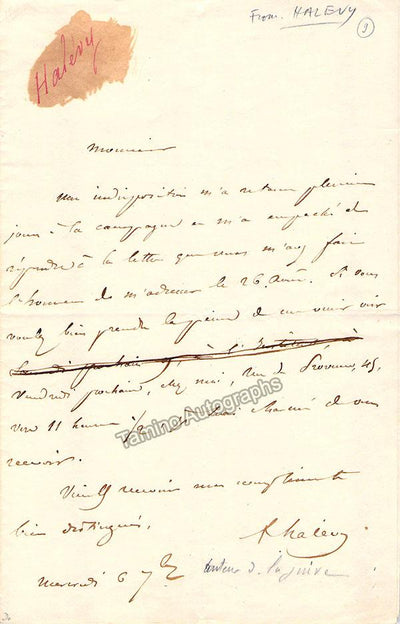 From. HALEVY
9
Halévy
Monsieur
une indisposition m'a retenu plusieurs
jours à la campagne et m'a empêché de
répondre à la lettre que vous m'avez fait
l'honneur de m'adresser le 26 août. Si vous
voulez bien prendre la peine de me venir voir
Lundi prochain à l'Institut à
Vendredi prochain, chez moi, rue de Provence, 45,
vers 11 heures 1/2, je serai charmé de vous
recevoir.
Tamino Autographs
Veuillez recevoir mes compliments
bien distingués,
FHalévy
Mercredi 6 7bre
auteur de la juive